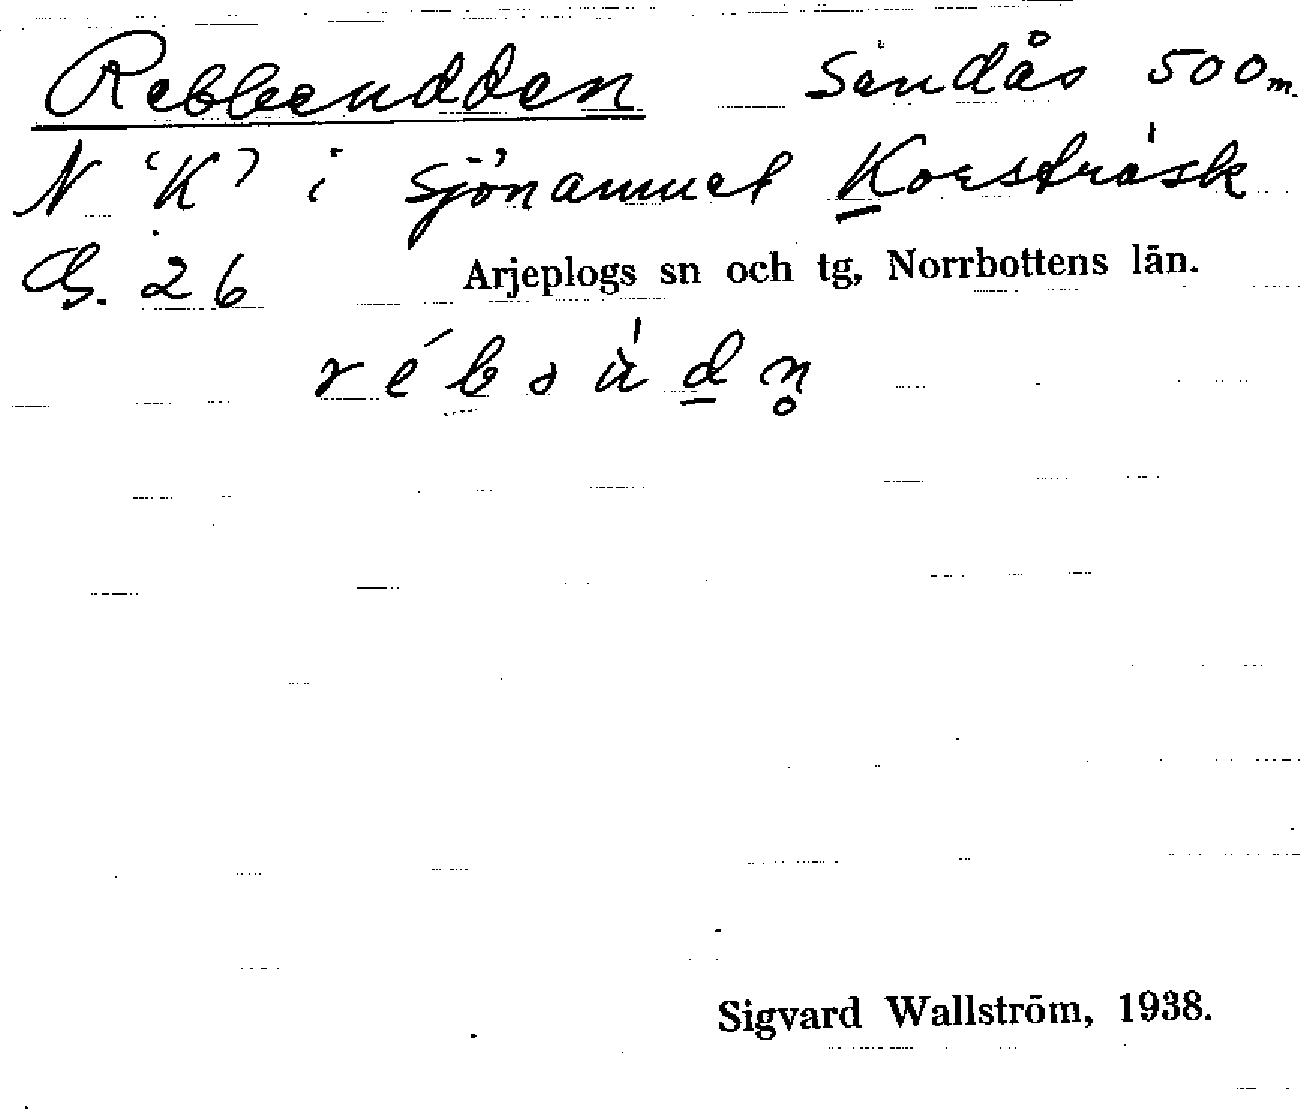 Rebbeudden Sandås 500 m.
N 'K' i sjönamnet Korsträsk
26 Arjeplogs sn och tg, Norrbottens län.
Sigvard Wallström, 1938.